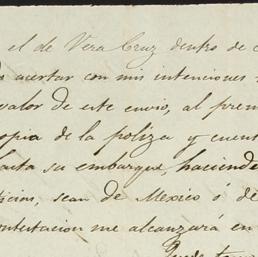 el de Vera Cruz dentro de
acertar con mis intenciones
valor de este envio, al
opia de la poliza y
su embarque, haciende
sean de Mexico ó de
ntestacion me alcanzará en